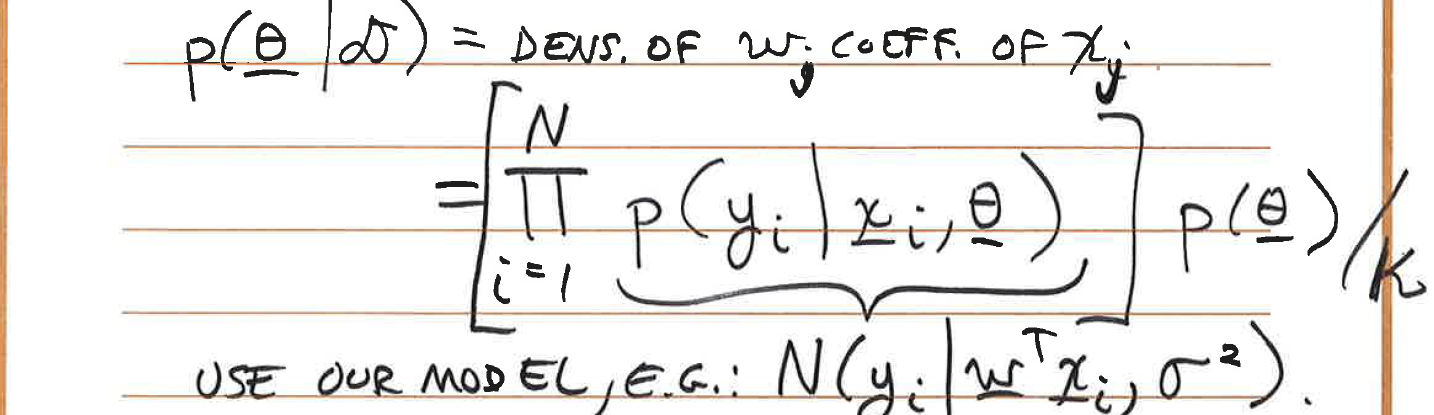 p(θ|𝒟) = DENS. OF w_j COEFF. OF x_j
= [ ∏_{i=1}^{N} p(y_i | x_i, θ) ] p(θ) / K
USE OUR MODEL, E.G.: N(y_i | w^T x_i, σ²).